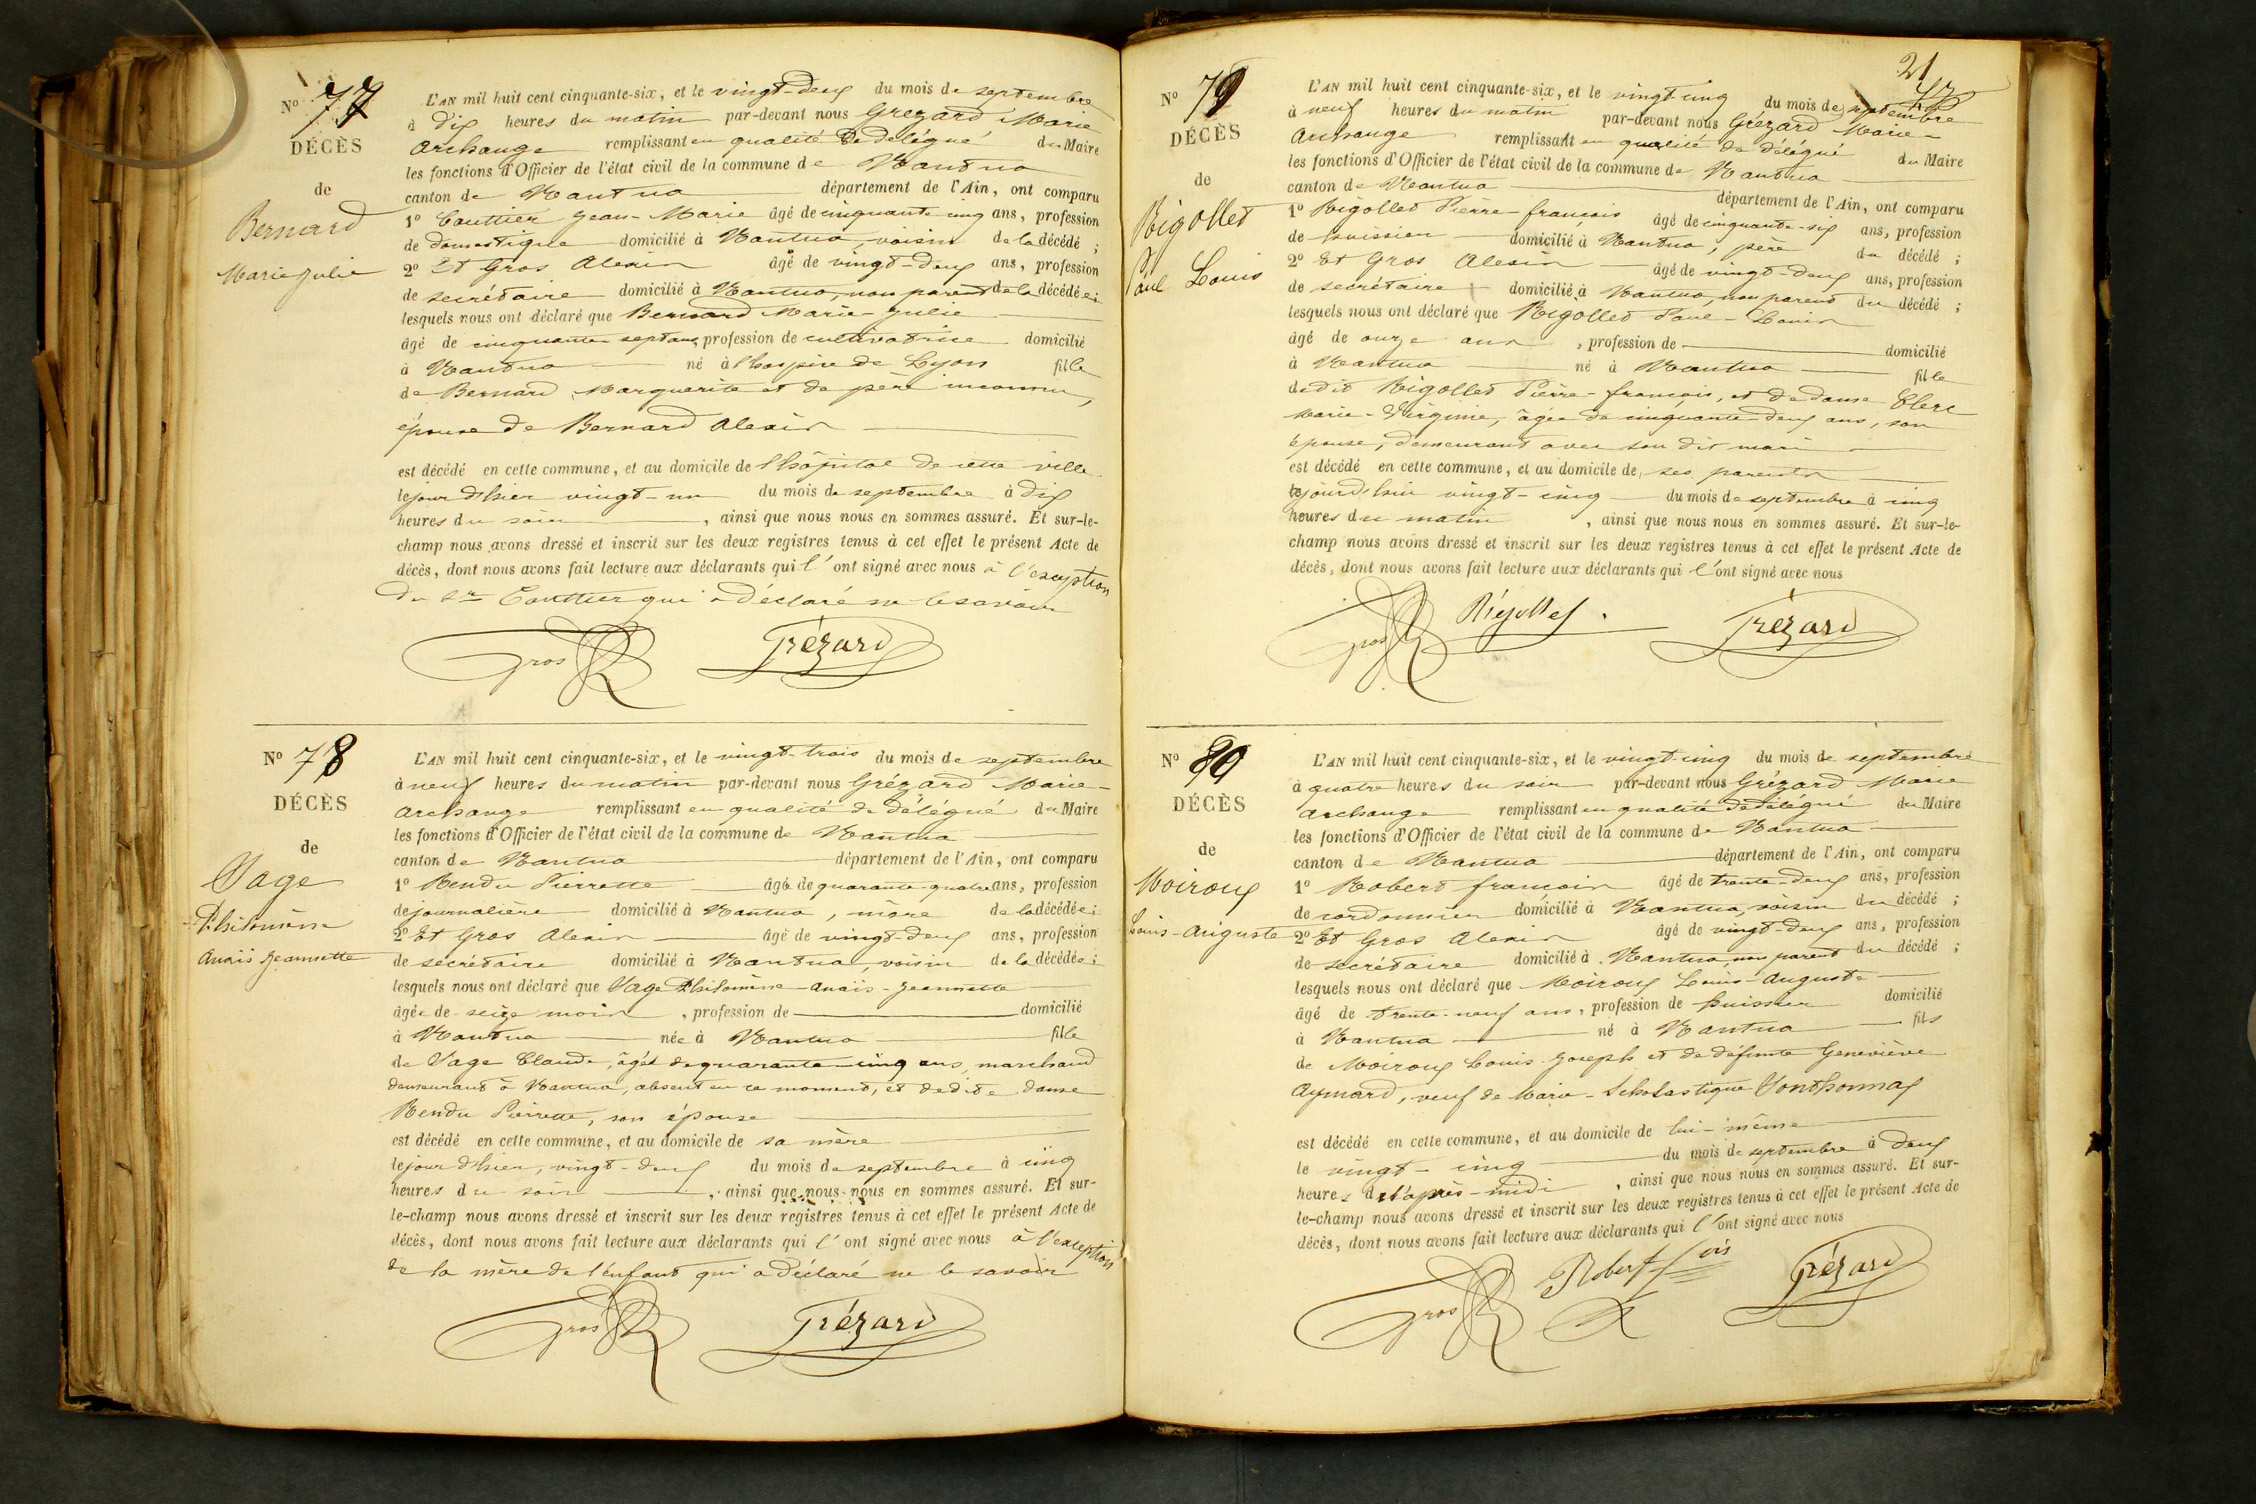 No 77
DÉCÈS
de
Bernard
Marie Julie
L'AN mil huit cent cinquante-six, et le vingt-deux du mois de septembre
à dix heures du matin par-devant nous Grézard Marie
Archange remplissant en qualité de délégué du Maire
les fonctions d'Officier de l'état civil de la commune de Nantua
canton de Nantua département de l'Ain, ont comparu
1º Gauttier Jean-Marie âgé de cinquante cinq ans, profession
de domestique domicilié à Nantua, voisin de la décédé ;
2º Et Gros Alexis âgé de vingt-deux ans, profession
de secrétaire domicilié à Nantua, non parent de la décédée ;
lesquels nous ont déclaré que Bernard Marie-Julie
âgé de cinquante sept ans, profession de cultivatrice domicilié
à Nantua né à l'hospice de Lyon fille
de Bernard Marguerite et de père inconnu,
épouse de Bernard Alexis
est décédé en cette commune, et au domicile de l'hôpital de cette ville
le jour d'hier vingt-un du mois de septembre à dix
heures du soir, ainsi que nous nous en sommes assuré. Et sur-le-
champ nous avons dressé et inscrit sur les deux registres tenus à cet effet le présent Acte de
décès, dont nous avons fait lecture aux déclarants qui l'ont signé avec nous à l'exception
du Sr Gauttier qui a déclaré ne le savoir
Gros Grézard
No 78
DÉCÈS
de
Vage
Philomène
Anaïs Jeannette
L'AN mil huit cent cinquante-six, et le vingt-trois du mois de septembre
à neuf heures du matin par-devant nous Grézard Marie-
Archange remplissant en qualité de délégué du Maire
les fonctions d'Officier de l'état civil de la commune de Nantua
canton de Nantua département de l'Ain, ont comparu
1º Rendu Pierrette âgé de quarante-quatre ans, profession
de journalière domicilié à Nantua, mère de la décédée ;
2º Et Gros Alexis âgé de vingt-deux ans, profession
de secrétaire domicilié à Nantua, voisin de la décédée ;
lesquels nous ont déclaré que Vage Philomène-Anaïs-Jeannette
âgée de seize mois, profession de domicilié
à Nantua née à Nantua fille
de Vage Claude, âgé de quarante-cinq ans, marchand
demeurant à Nantua, absent en ce moment, et de dite dame
Rendu Pierrette, son épouse
est décédé en cette commune, et au domicile de sa mère
le jour d'hier, vingt-deux du mois de septembre à cinq
heures du soir, ainsi que nous nous en sommes assuré. Et sur-
le-champ nous avons dressé et inscrit sur les deux registres tenus à cet effet le présent Acte de
décès, dont nous avons fait lecture aux déclarants qui l'ont signé avec nous à l'exception
de la mère de l'enfant qui a déclaré ne le savoir
Gros Grézard
21
No 79
DÉCÈS
de
Rigollet
Paul Louis
L'AN mil huit cent cinquante-six, et le vingt cinq du mois de septembre
à neuf heures du matin par-devant nous Grézard Marie-
Archange remplissant en qualité de délégué du Maire
les fonctions d'Officier de l'état civil de la commune de Nantua
canton de Nantua département de l'Ain, ont comparu
1º Rigollet Pierre-françois âgé de cinquante-six ans, profession
de huissier domicilié à Nantua, père du décédé ;
2º Et Gros Alexis âgé de vingt-deux ans, profession
de secrétaire domicilié à Nantua, non parent du décédé ;
lesquels nous ont déclaré que Rigollet Paul-Louis
âgé de onze ans, profession de domicilié
à Nantua né à Nantua fils
de dit Rigollet Pierre-françois, et de dame Clerc
Marie-Virginie, âgée de cinquante deux ans, son
épouse, demeurant avec son dit mari
est décédé en cette commune, et au domicile de ses parents
le jourd'hui vingt-cinq du mois de septembre à cinq
heures du matin, ainsi que nous nous en sommes assuré. Et sur-le-
champ nous avons dressé et inscrit sur les deux registres tenus à cet effet le présent Acte de
décès, dont nous avons fait lecture aux déclarants qui l'ont signé avec nous
Gros Rigollet Grézard
No 80
DÉCÈS
de
Moiroux
Louis-Auguste
L'AN mil huit cent cinquante-six, et le vingt cinq du mois de septembre
à quatre heures du soir par-devant nous Grézard Marie
Archange remplissant en qualité de délégué du Maire
les fonctions d'Officier de l'état civil de la commune de Nantua
canton de Nantua département de l'Ain, ont comparu
1º Robert françois âgé de trente-deux ans, profession
de cordonnier domicilié à Nantua, voisin du décédé ;
2º Et Gros Alexis âgé de vingt-deux ans, profession
de secrétaire domicilié à Nantua, non parent du décédé ;
lesquels nous ont déclaré que Moiroux Louis-Auguste
âgé de trente-neuf ans, profession de huissier domicilié
à Nantua né à Nantua fils
de Moiroux Louis-Joseph et de défunte Geneviève
Aymard, veuf de Marie-Scholastique Vonthonnax
est décédé en cette commune, et au domicile de lui-même
le vingt-cinq du mois de septembre à deux
heures de l'après-midi, ainsi que nous nous en sommes assuré. Et sur-
le-champ nous avons dressé et inscrit sur les deux registres tenus à cet effet le présent Acte de
décès, dont nous avons fait lecture aux déclarants qui l'ont signé avec nous
Gros Robert fçois Grézard